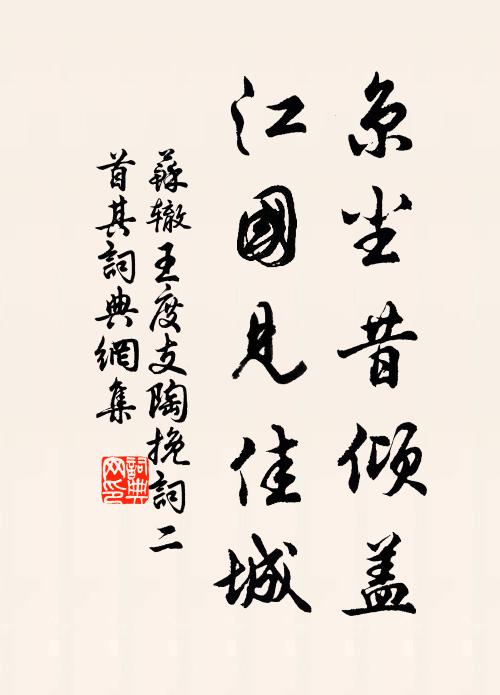 京尘昔倾盖
江國見佳城
蘇辙王度支陶挽詞二
首其詞典網集
詞典
网印